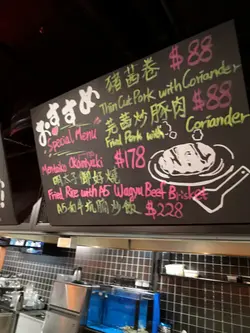 おすすめ
Special Menu
豬茜卷 $88
Thin Cut Pork with Coriander
芫茜炒豚肉 $88
Fried Pork with Coriander
Mentaiko Okonomiyaki $178
明太子御好燒
Fried Rice with A5 Wagyu Beef Brisket
A5和牛坑腩炒飯 $228